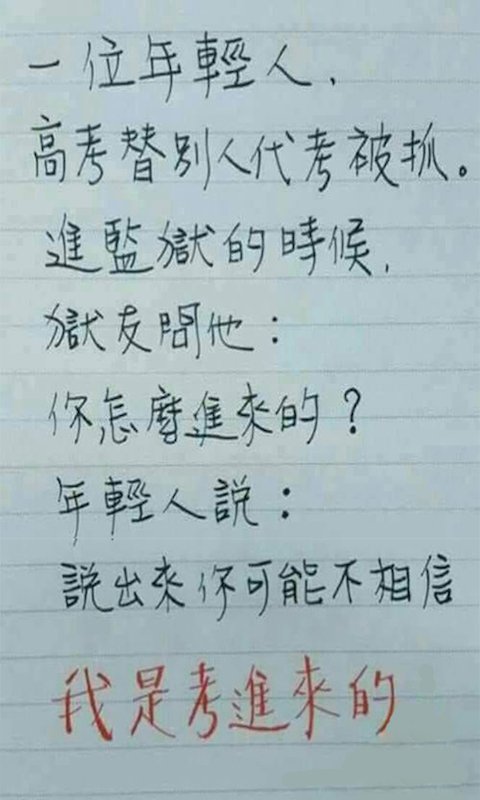 一位年輕人，
高考替別人代考被抓。
進監獄的時候，
獄友問他：
你怎麼進來的？
年輕人說：
說出來你可能不相信
我是考進來的